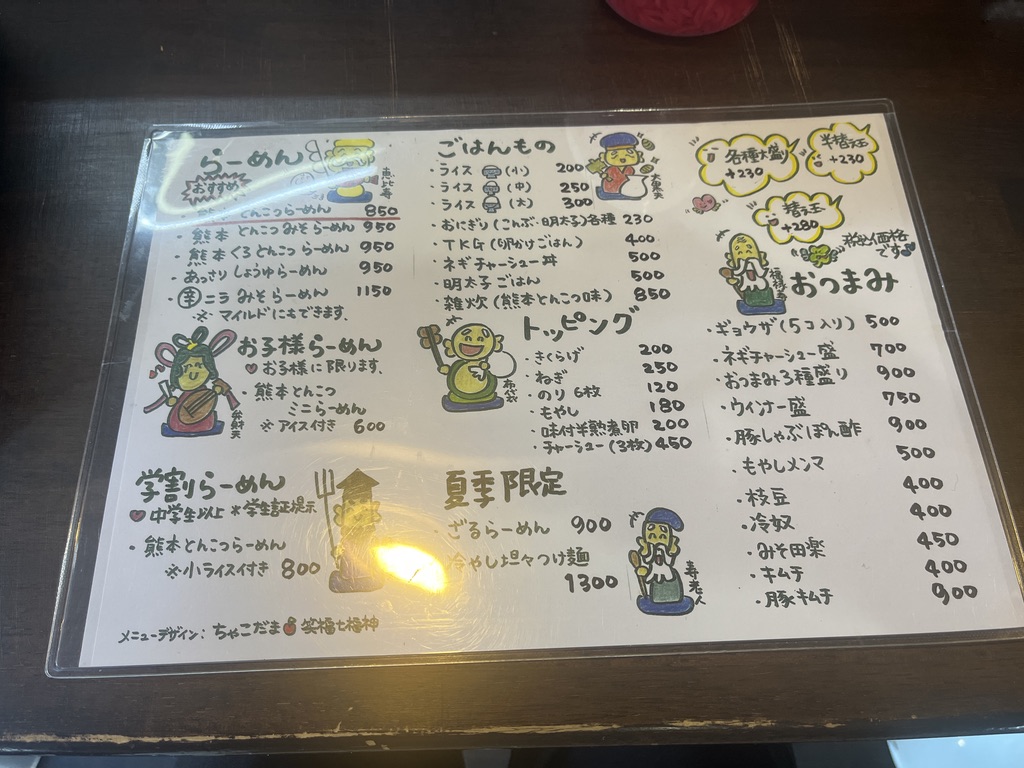 らーめん
おすすめ
恵比寿
熊本 とんこつらーめん 850
・熊本 とんこつ みそらーめん 950
・熊本 くろ とんこつ らーめん 950
・あっさり しょうゆらーめん 950
・辛 ニラ みそ らーめん 1150
※ マイルドにもできます。
お子様らーめん
お子様に限ります。
・熊本とんこつ
ミニらーめん
※アイス付き 600
弁財天
学割らーめん
中学生以上 ※学生証提示
・熊本とんこつらーめん
※小ライス付き 800
メニューデザイン: ちゃこだま 笑福七福神
ごはんもの
・ライス (小) 200
・ライス (中) 250
・ライス (大) 300
・おにぎり(こんぶ・明太子)各種 230
・TKG (卵かけごはん) 400
・ネギチャーシュー丼 500
・明太子ごはん 500
・雑炊 (熊本とんこつ味) 850
大黒天
トッピング
・きくらげ 200
・ねぎ 250
・のり 6枚 120
・もやし 180
・味付半熟煮卵 200
・チャーシュー (3枚) 450
布袋
夏季限定
ざるらーめん 900
冷やし坦々つけ麺
1300
寿老人
各種大盛
+230
半替玉
+230
替玉
+280
税込価格
です
おつまみ
・ギョウザ (5コ入り) 500
・ネギチャーシュー盛 700
・おつまみ3種盛り 900
・ウィンナー盛 750
・豚しゃぶぽん酢 900
・もやしメンマ 500
・枝豆 400
・冷奴 400
・みそ田楽 450
・キムチ 400
・豚キムチ 900